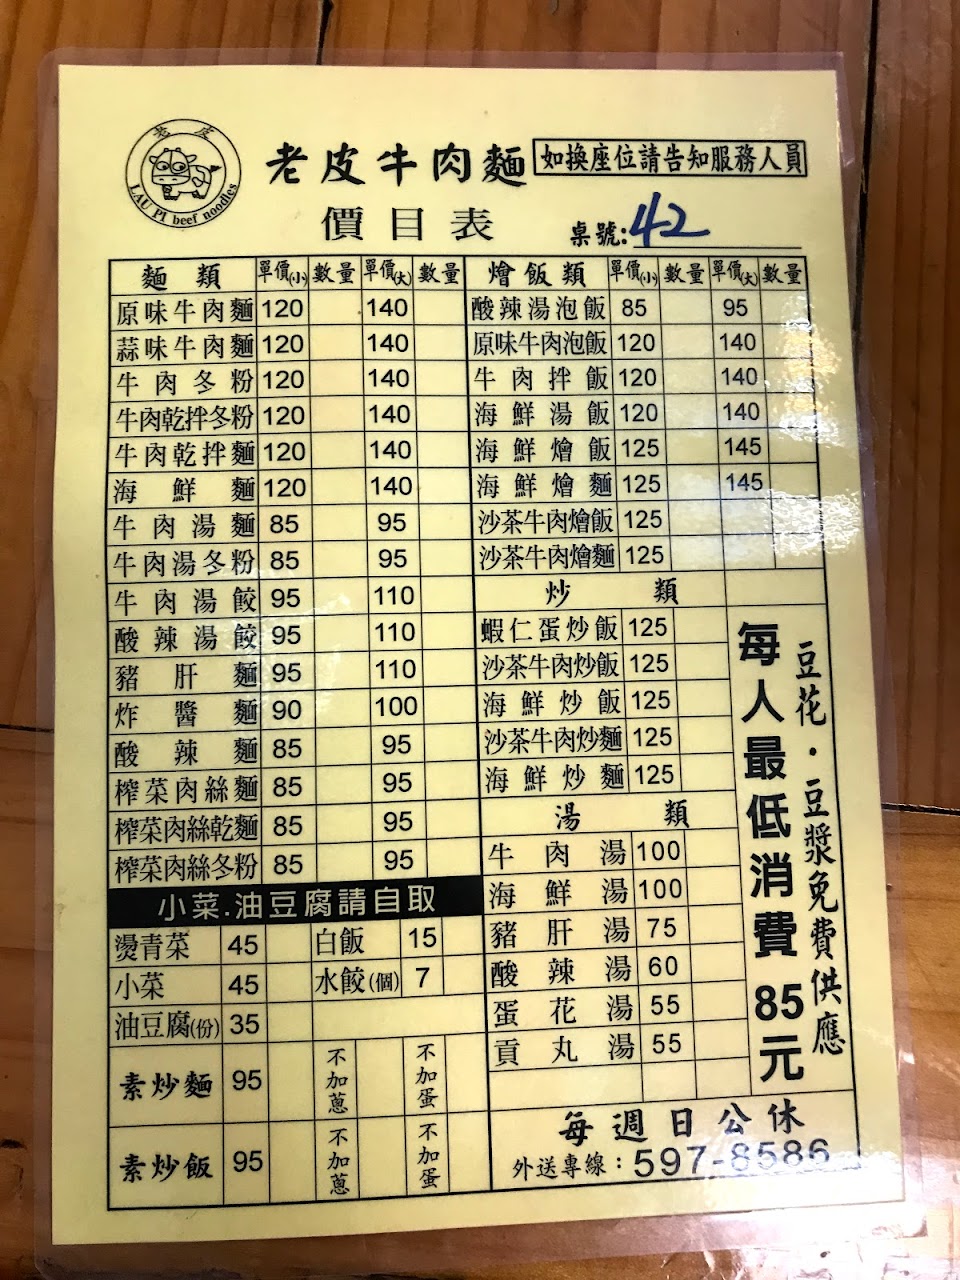 老皮
LAU PI beef noodles
老皮牛肉麵
如換座位請告知服務人員
價目表
桌號:42
麵類 單價(小) 數量 單價(大) 數量
原味牛肉麵 120 140
蒜味牛肉麵 120 140
牛肉冬粉 120 140
牛肉乾拌冬粉 120 140
牛肉乾拌麵 120 140
海鮮麵 120 140
牛肉湯麵 85 95
牛肉湯冬粉 85 95
牛肉湯餃 95 110
酸辣湯餃 95 110
豬肝麵 95 110
炸醬麵 90 100
酸辣麵 85 95
榨菜肉絲麵 85 95
榨菜肉絲乾麵 85 95
榨菜肉絲冬粉 85 95
小菜.油豆腐請自取
燙青菜 45 白飯 15
小菜 45 水餃(個) 7
油豆腐(份) 35
素炒麵 95 不加蔥 不加蛋
素炒飯 95 不加蔥 不加蛋
燴飯類 單價(小) 數量 單價(大) 數量
酸辣湯泡飯 85 95
原味牛肉泡飯 120 140
牛肉拌飯 120 140
海鮮湯飯 120 140
海鮮燴飯 125 145
海鮮燴麵 125 145
沙茶牛肉燴飯 125
沙茶牛肉燴麵 125
炒類
蝦仁蛋炒飯 125
沙茶牛肉炒飯 125
海鮮炒飯 125
沙茶牛肉炒麵 125
海鮮炒麵 125
湯類
牛肉湯 100
海鮮湯 100
豬肝湯 75
酸辣湯 60
蛋花湯 55
貢丸湯 55
豆花・豆漿免費供應
每人最低消費85元
每週日公休
外送專線：597-8586